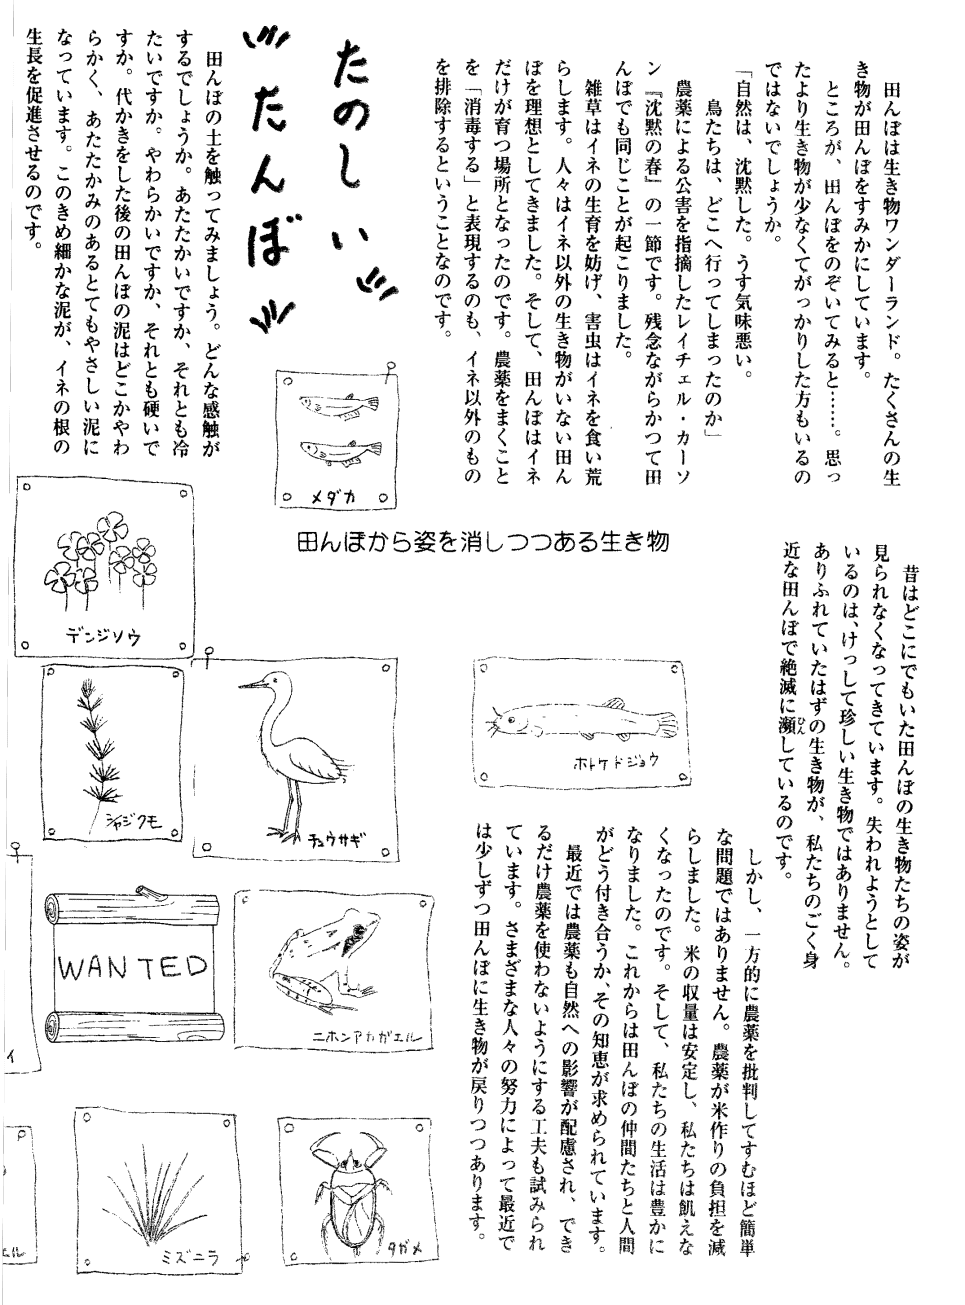 田んぼは生き物ワンダーランド。たくさんの生
き物が田んぼをすみかにしています。
ところが、田んぼをのぞいてみると……。思っ
たより生き物が少なくてがっかりした方もいるの
ではないでしょうか。
「自然は、沈黙した。うす気味悪い。
鳥たちは、どこへ行ってしまったのか」
農薬による公害を指摘したレイチェル・カーソ
ン『沈黙の春』の一節です。残念ながらかつて田
んぼでも同じことが起こりました。
雑草はイネの生育を妨げ、害虫はイネを食い荒
らします。人々はイネ以外の生き物がいない田ん
ぼを理想としてきました。そして、田んぼはイネ
だけが育つ場所となったのです。農薬をまくこと
を「消毒する」と表現するのも、イネ以外のもの
を排除するということなのです。
たのしい
たんぼ
田んぼの土を触ってみましょう。どんな感触が
するでしょうか。あたたかいですか、それとも冷
たいですか。やわらかいですか、それとも硬いで
すか。代かきをした後の田んぼの泥はどこかやわ
らかく、あたたかみのあるとてもやさしい泥に
なっています。このきめ細かな泥が、イネの根の
生長を促進させるのです。
田んぼから姿を消しつつある生き物
昔はどこにでもいた田んぼの生き物たちの姿が
見られなくなってきています。失われようとして
いるのは、けっして珍しい生き物ではありません。
ありふれていたはずの生き物が、私たちのごく身
近な田んぼで絶滅に瀕しているのです。
ひん
しかし、一方的に農薬を批判してすむほど簡単
な問題ではありません。農薬が米作りの負担を減
らしました。米の収量は安定し、私たちは飢えな
くなったのです。そして、私たちの生活は豊かに
なりました。これからは田んぼの仲間たちと人間
がどう付き合うか、その知恵が求められています。
最近では農薬も自然への影響が配慮され、でき
るだけ農薬を使わないようにする工夫も試みられ
ています。さまざまな人々の努力によって最近で
は少しずつ田んぼに生き物が戻りつつあります。
メダカ
デンジソウ
シャジクモ
チュウサギ
ホトケドジョウ
WANTED
ニホンアカガエル
イ
エル
ミズニラ
タガメ